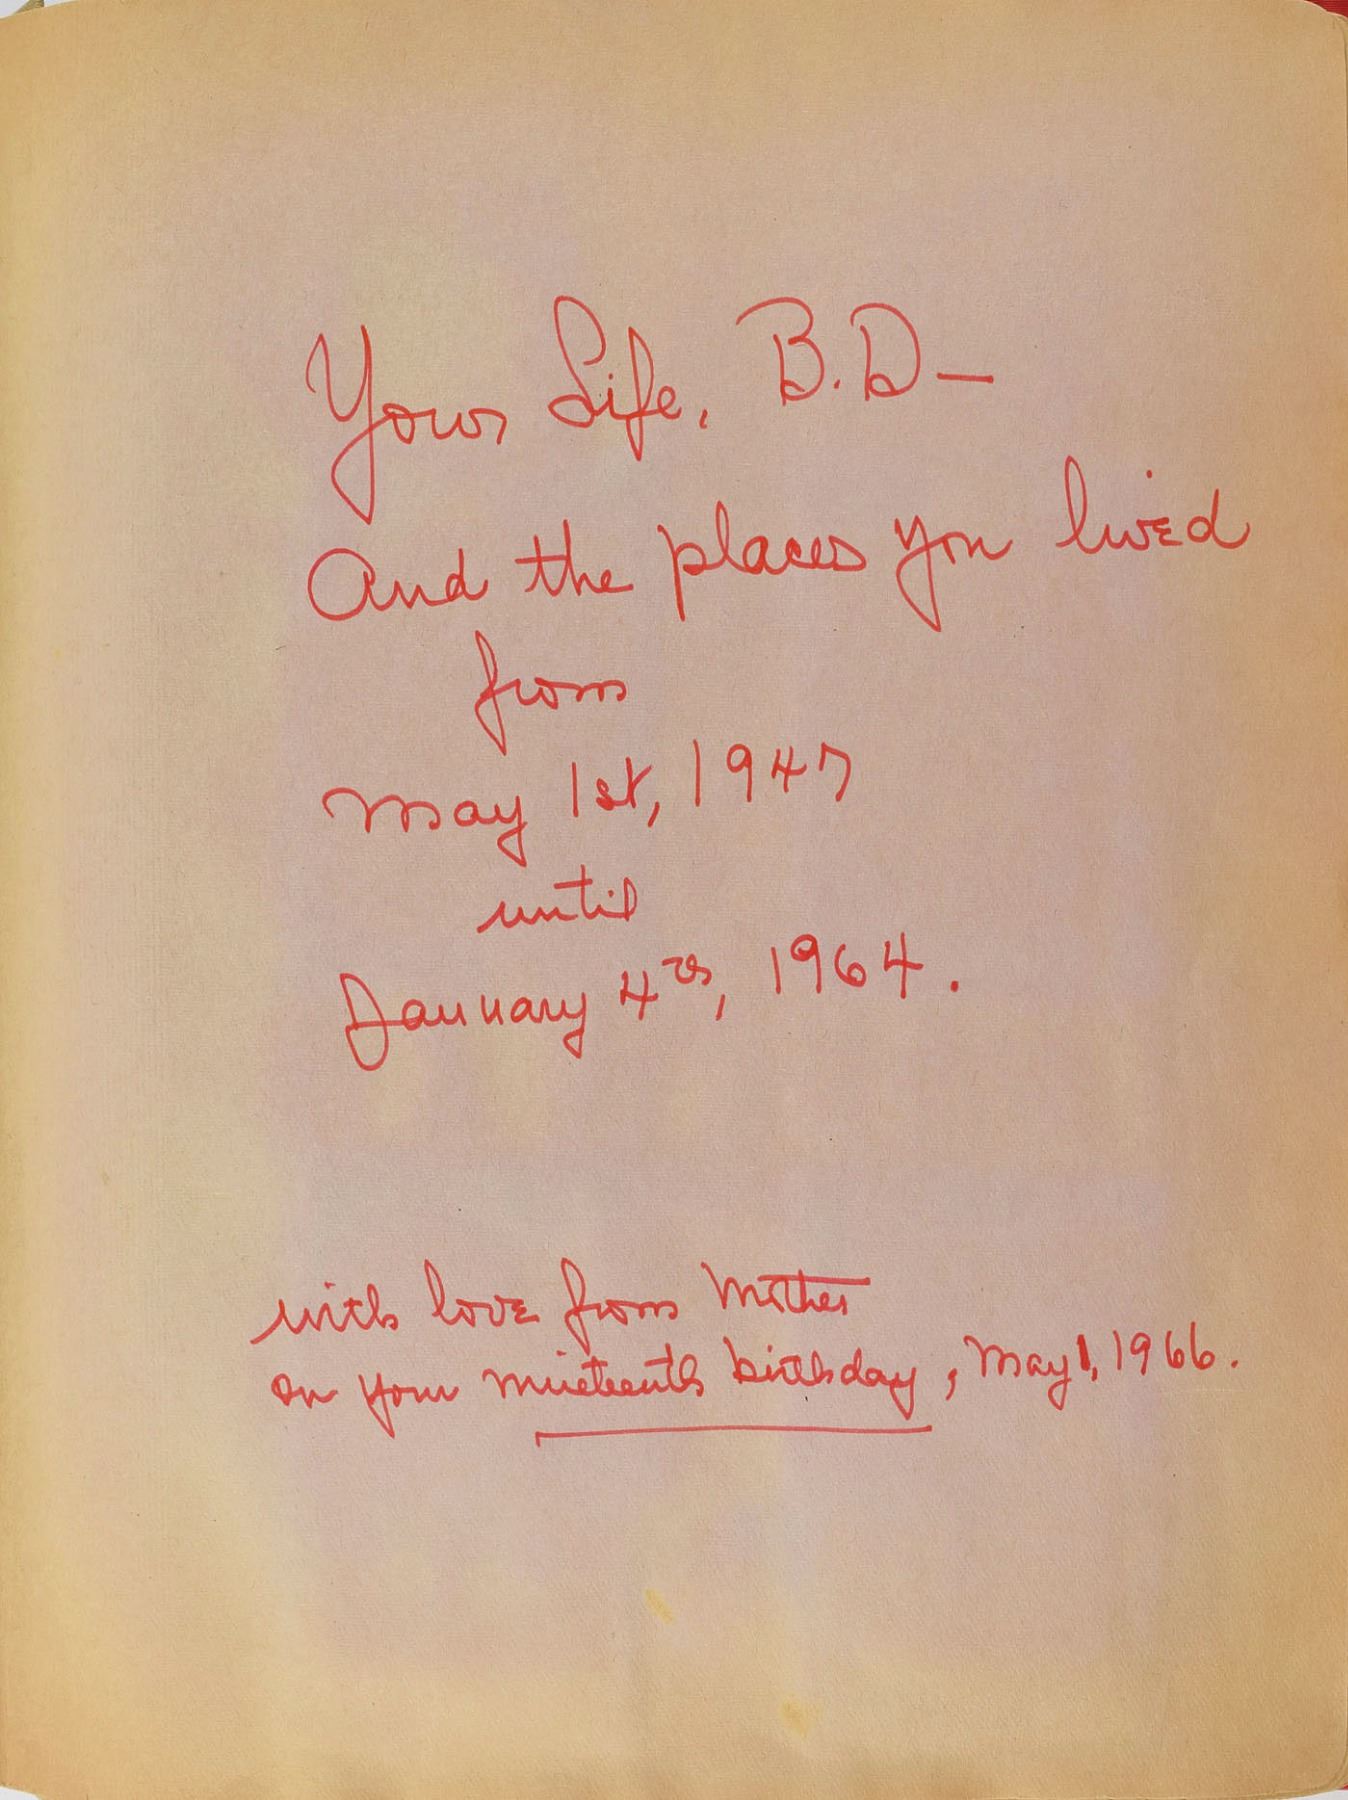 Your Life, B.D—
And the places you lived
from
May 1st, 1947
until
January 4th, 1964.
with love from Mother
on your nineteenth birthday, May 1, 1966.